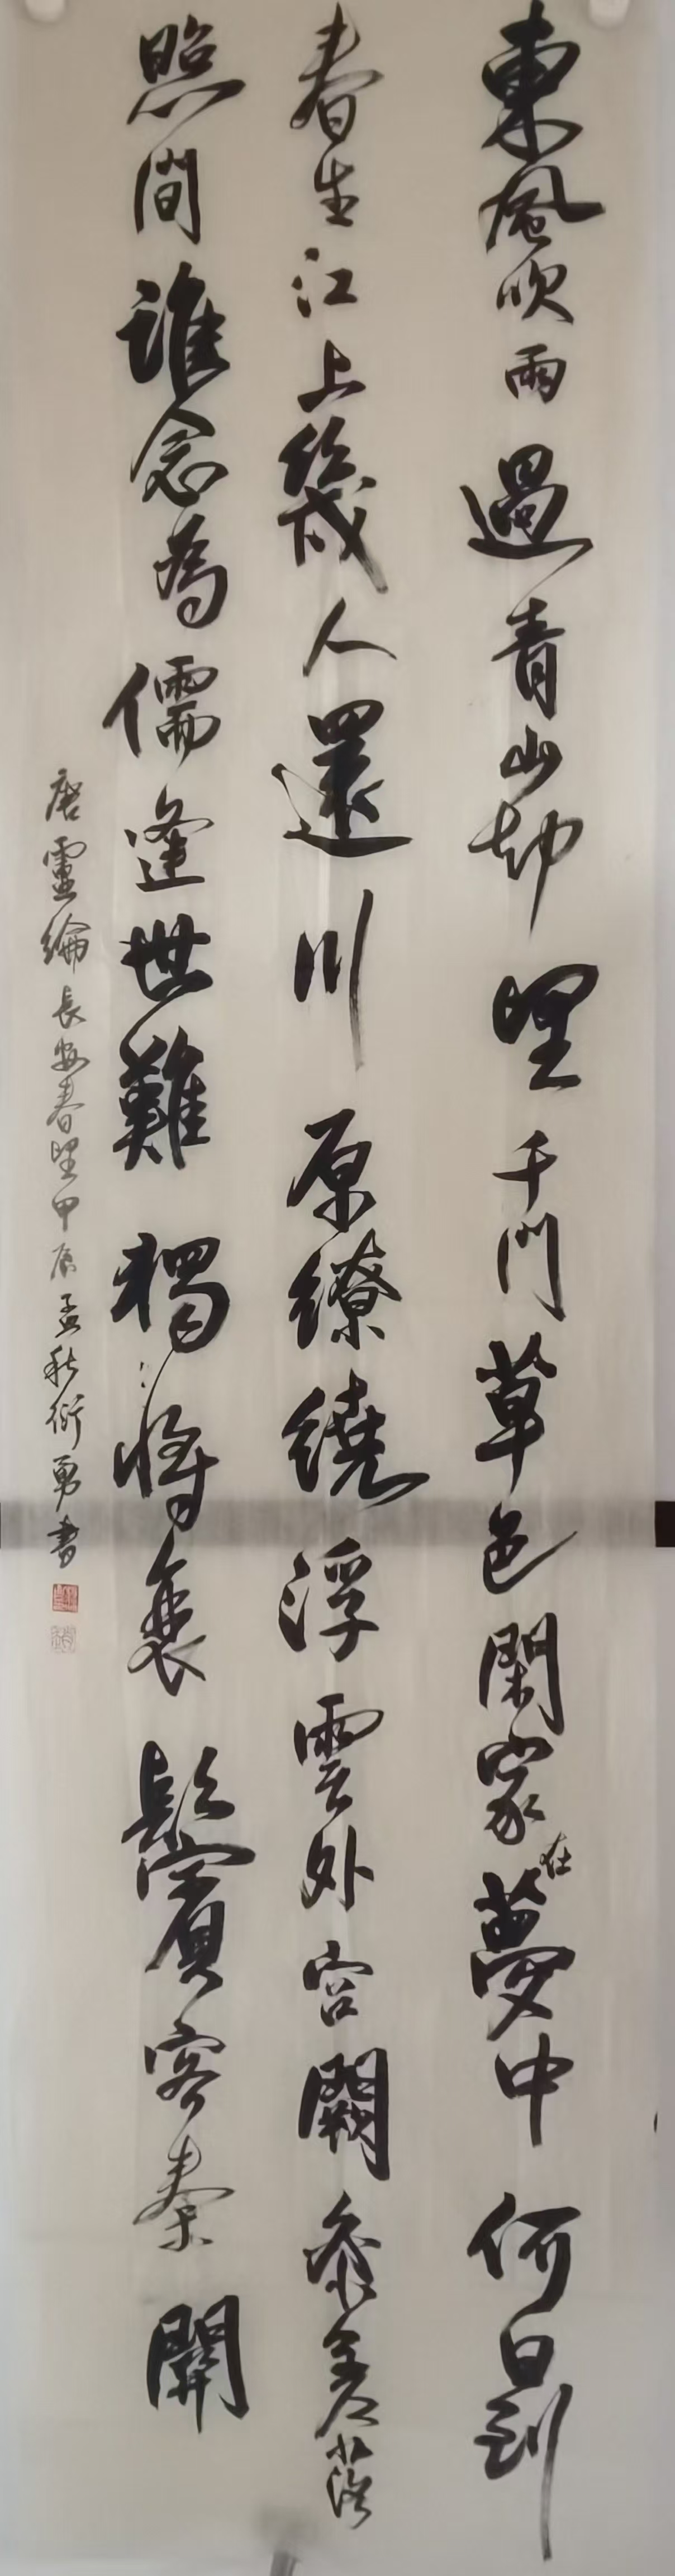 東風吹雨過青山却望千門草色閑家在夢中何日到
春生江上幾人還川原繚繞浮雲外宮闕參差落
照間誰念為儒逢世難獨將衰鬢客秦關
唐盧綸長安春望甲辰孟秋衍勇書